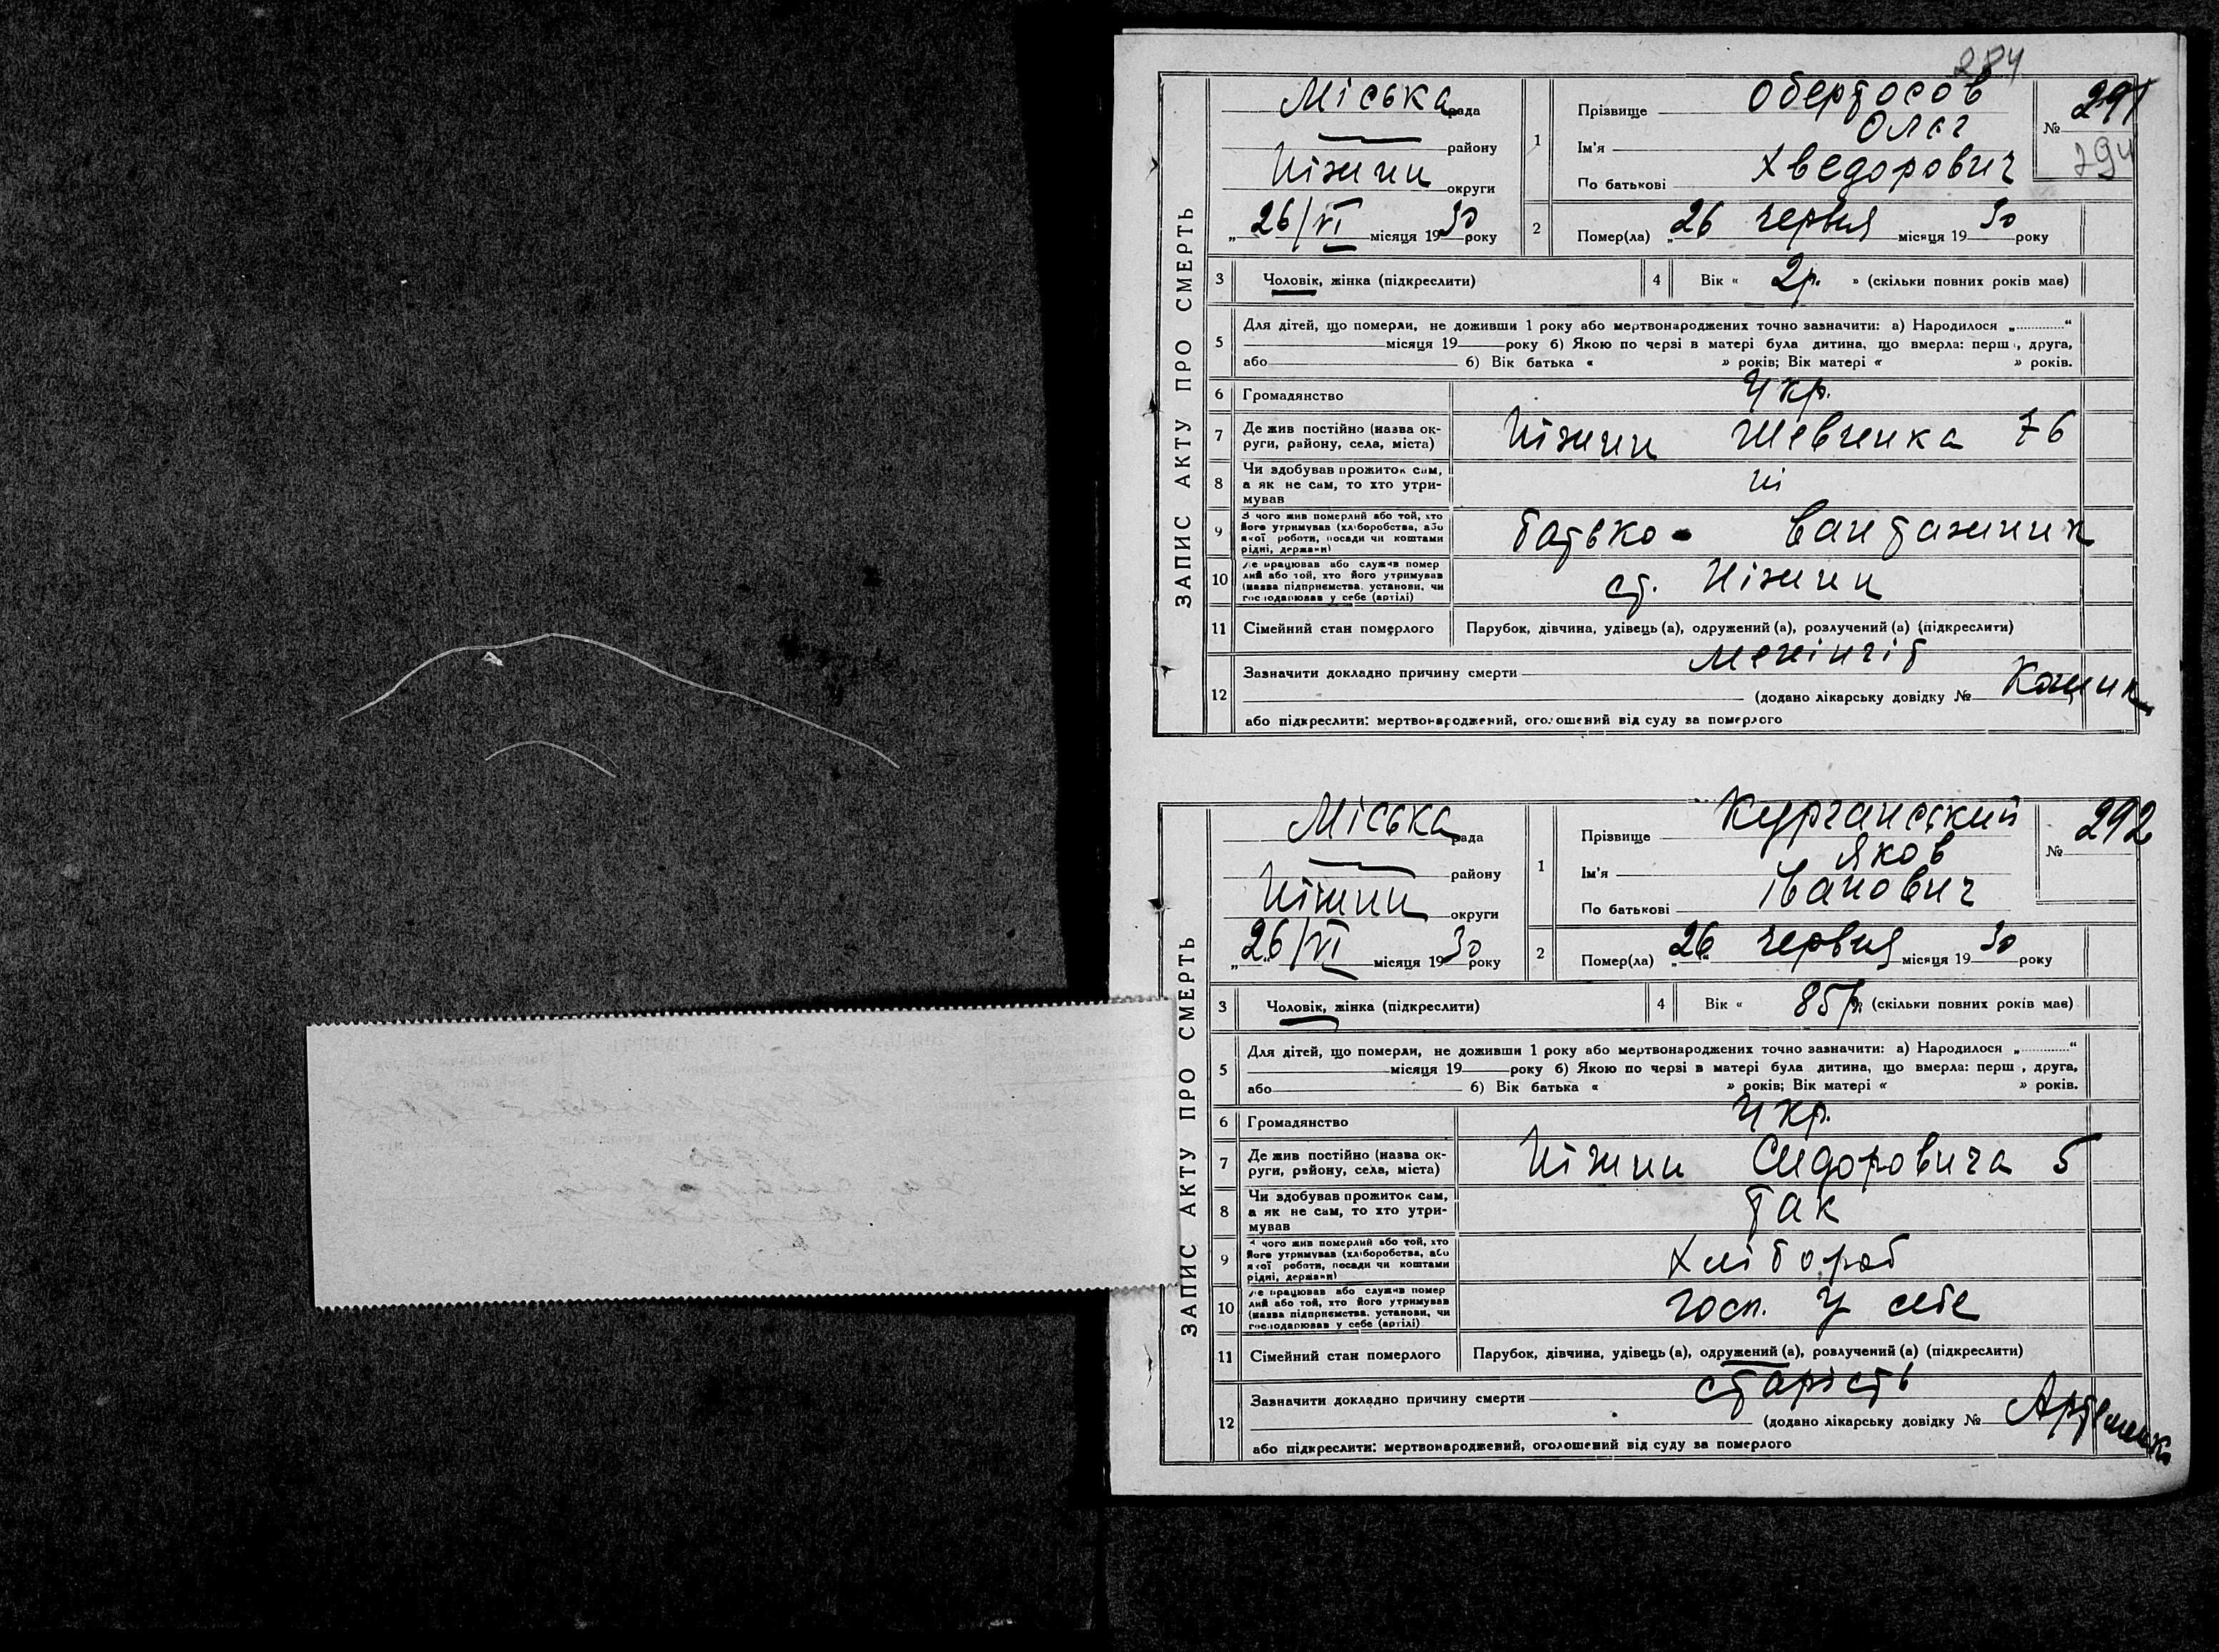 284
ЗАПИС АКТУ ПРО СМЕРТЬ
Міська рада
району
Ніжин округи
„26/VI місяця 1930 року
1
Прізвище Обертосов
Ім'я Олег
По батькові Хведорович
№ 291
294
2 Помер(ла) „26 червня місяця 1930 року
3 Чоловік, жінка (підкреслити) 4 Вік « 2р. » (скільки повних років має)
5 Для дітей, що померли, не доживши 1 року або мертвонароджених точно зазначити: а) Народилося „............“
місяця 19 року б) Якою по черзі в матері була дитина, що вмерла: перш , друга,
або 6) Вік батька « » років; Вік матері « » років.
6 Громадянство Укр.
7 Де жив постійно (назва ок-
руги, району, села, міста) Ніжин Шевченка 76
8 Чи здобував прожиток сам,
а як не сам, то хто утри-
мував ні
9 З чого жив померлий або той, хто
його утримував (хліборобства, або
якої роботи, посади чи коштами
рідні, держави) батько - вантажник
10 Де працював або служив помер
лий або той, хто його утримував
(назва підприємства, установи, чи
господарював у себе (артілі) ст. Ніжин
11 Сімейний стан померлого Парубок, дівчина, удівець (а), одружений (а), розлучений (а) (підкреслити)
12 Зазначити докладно причину смерти менінгіт
(додано лікарську довідку №
або підкреслити: мертвонароджений, оголошений від суду за померлого
ЗАПИС АКТУ ПРО СМЕРТЬ
Міська рада
району
Ніжин округи
„26“/VI місяця 1930 року
1
Прізвище Курганський
Ім'я Яков
По батькові Іванович
№ 292
2 Помер(ла) „26“ червня місяця 1930 року
3 Чоловік, жінка (підкреслити) 4 Вік « 85р. (скільки повних років має)
5 Для дітей, що померли, не доживши 1 року або мертвонароджених точно зазначити: а) Народилося „............“
місяця 19 року б) Якою по черзі в матері була дитина, що вмерла: перш , друга,
або 6) Вік батька « » років; Вік матері « » років.
6 Громадянство Укр.
7 Де жив постійно (назва ок-
руги, району, села, міста) Ніжин Сидоровича 5
8 Чи здобував прожиток сам,
а як не сам, то хто утри-
мував так
9 З чого жив померлий або той, хто
його утримував (хліборобства, або
якої роботи, посади чи коштами
рідні, держави) хлібороб
10 Де працював або служив помер
лий або той, хто його утримував
(назва підприємства, установи, чи
господарював у себе (артілі) госп. у себе
11 Сімейний стан померлого Парубок, дівчина, удівець (а), одружений (а), розлучений (а) (підкреслити)
12 Зазначити докладно причину смерти старість
(додано лікарську довідку № Артеменко
або підкреслити: мертвонароджений, оголошений від суду за померлого